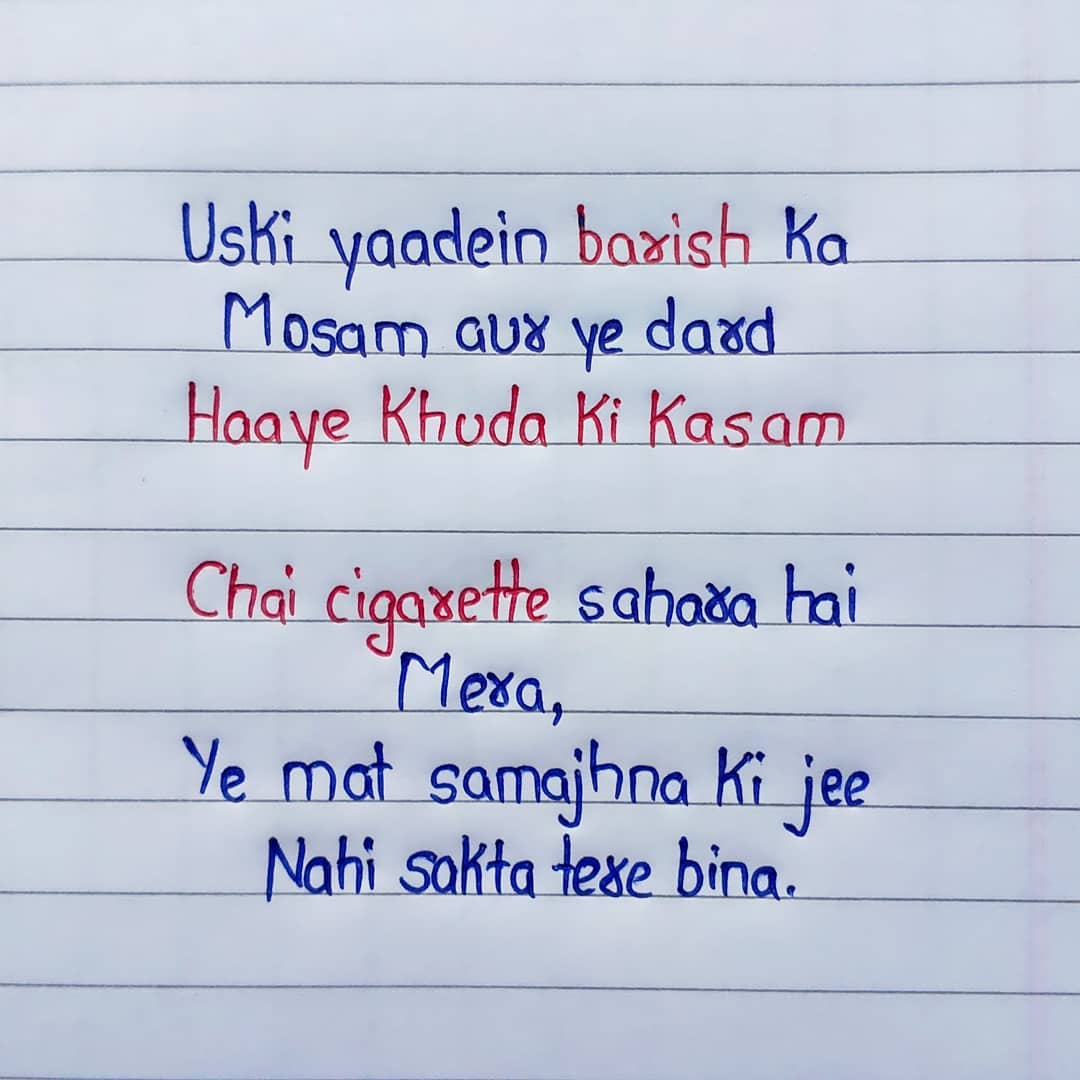 Uski yaadein barish Ka
Mosam aur ye dard
Haaye Khuda Ki Kasam
Chai cigarette sahara hai
Mera,
Ye mat samajhna Ki jee
Nahi sakta tere bina.